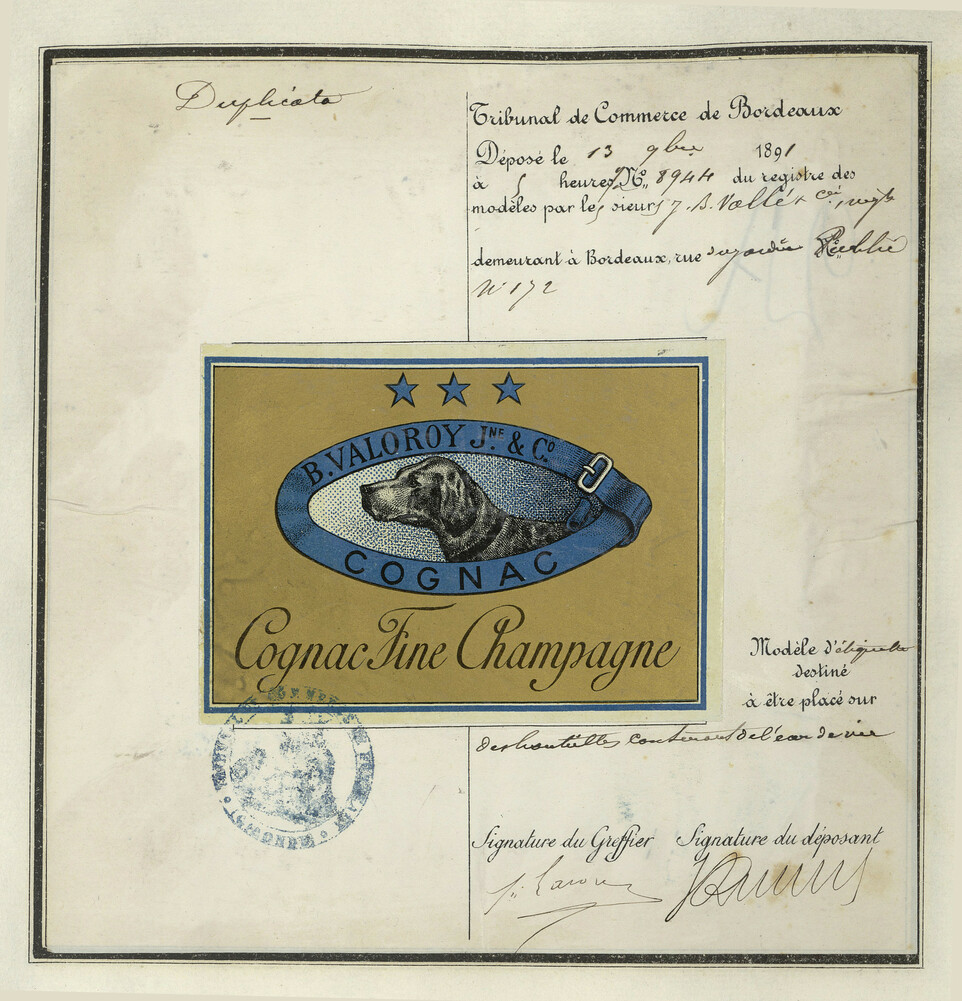 Duplicata
Tribunal de Commerce de Bordeaux
Déposé le 13 9bre 1891
à 5 heures Nº 8944 du registre des
modèles par les sieurs J. B. Vallé & Cie,
demeurant à Bordeaux, rue du jardin Public
Nº 172
B. VALOROY JNE. & Cº.
COGNAC
Cognac Fine Champagne
Modèle d'étiquette
destiné
à être placé sur
des bouteilles contenant de l'eau de vie
Signature du Greffier Signature du déposant